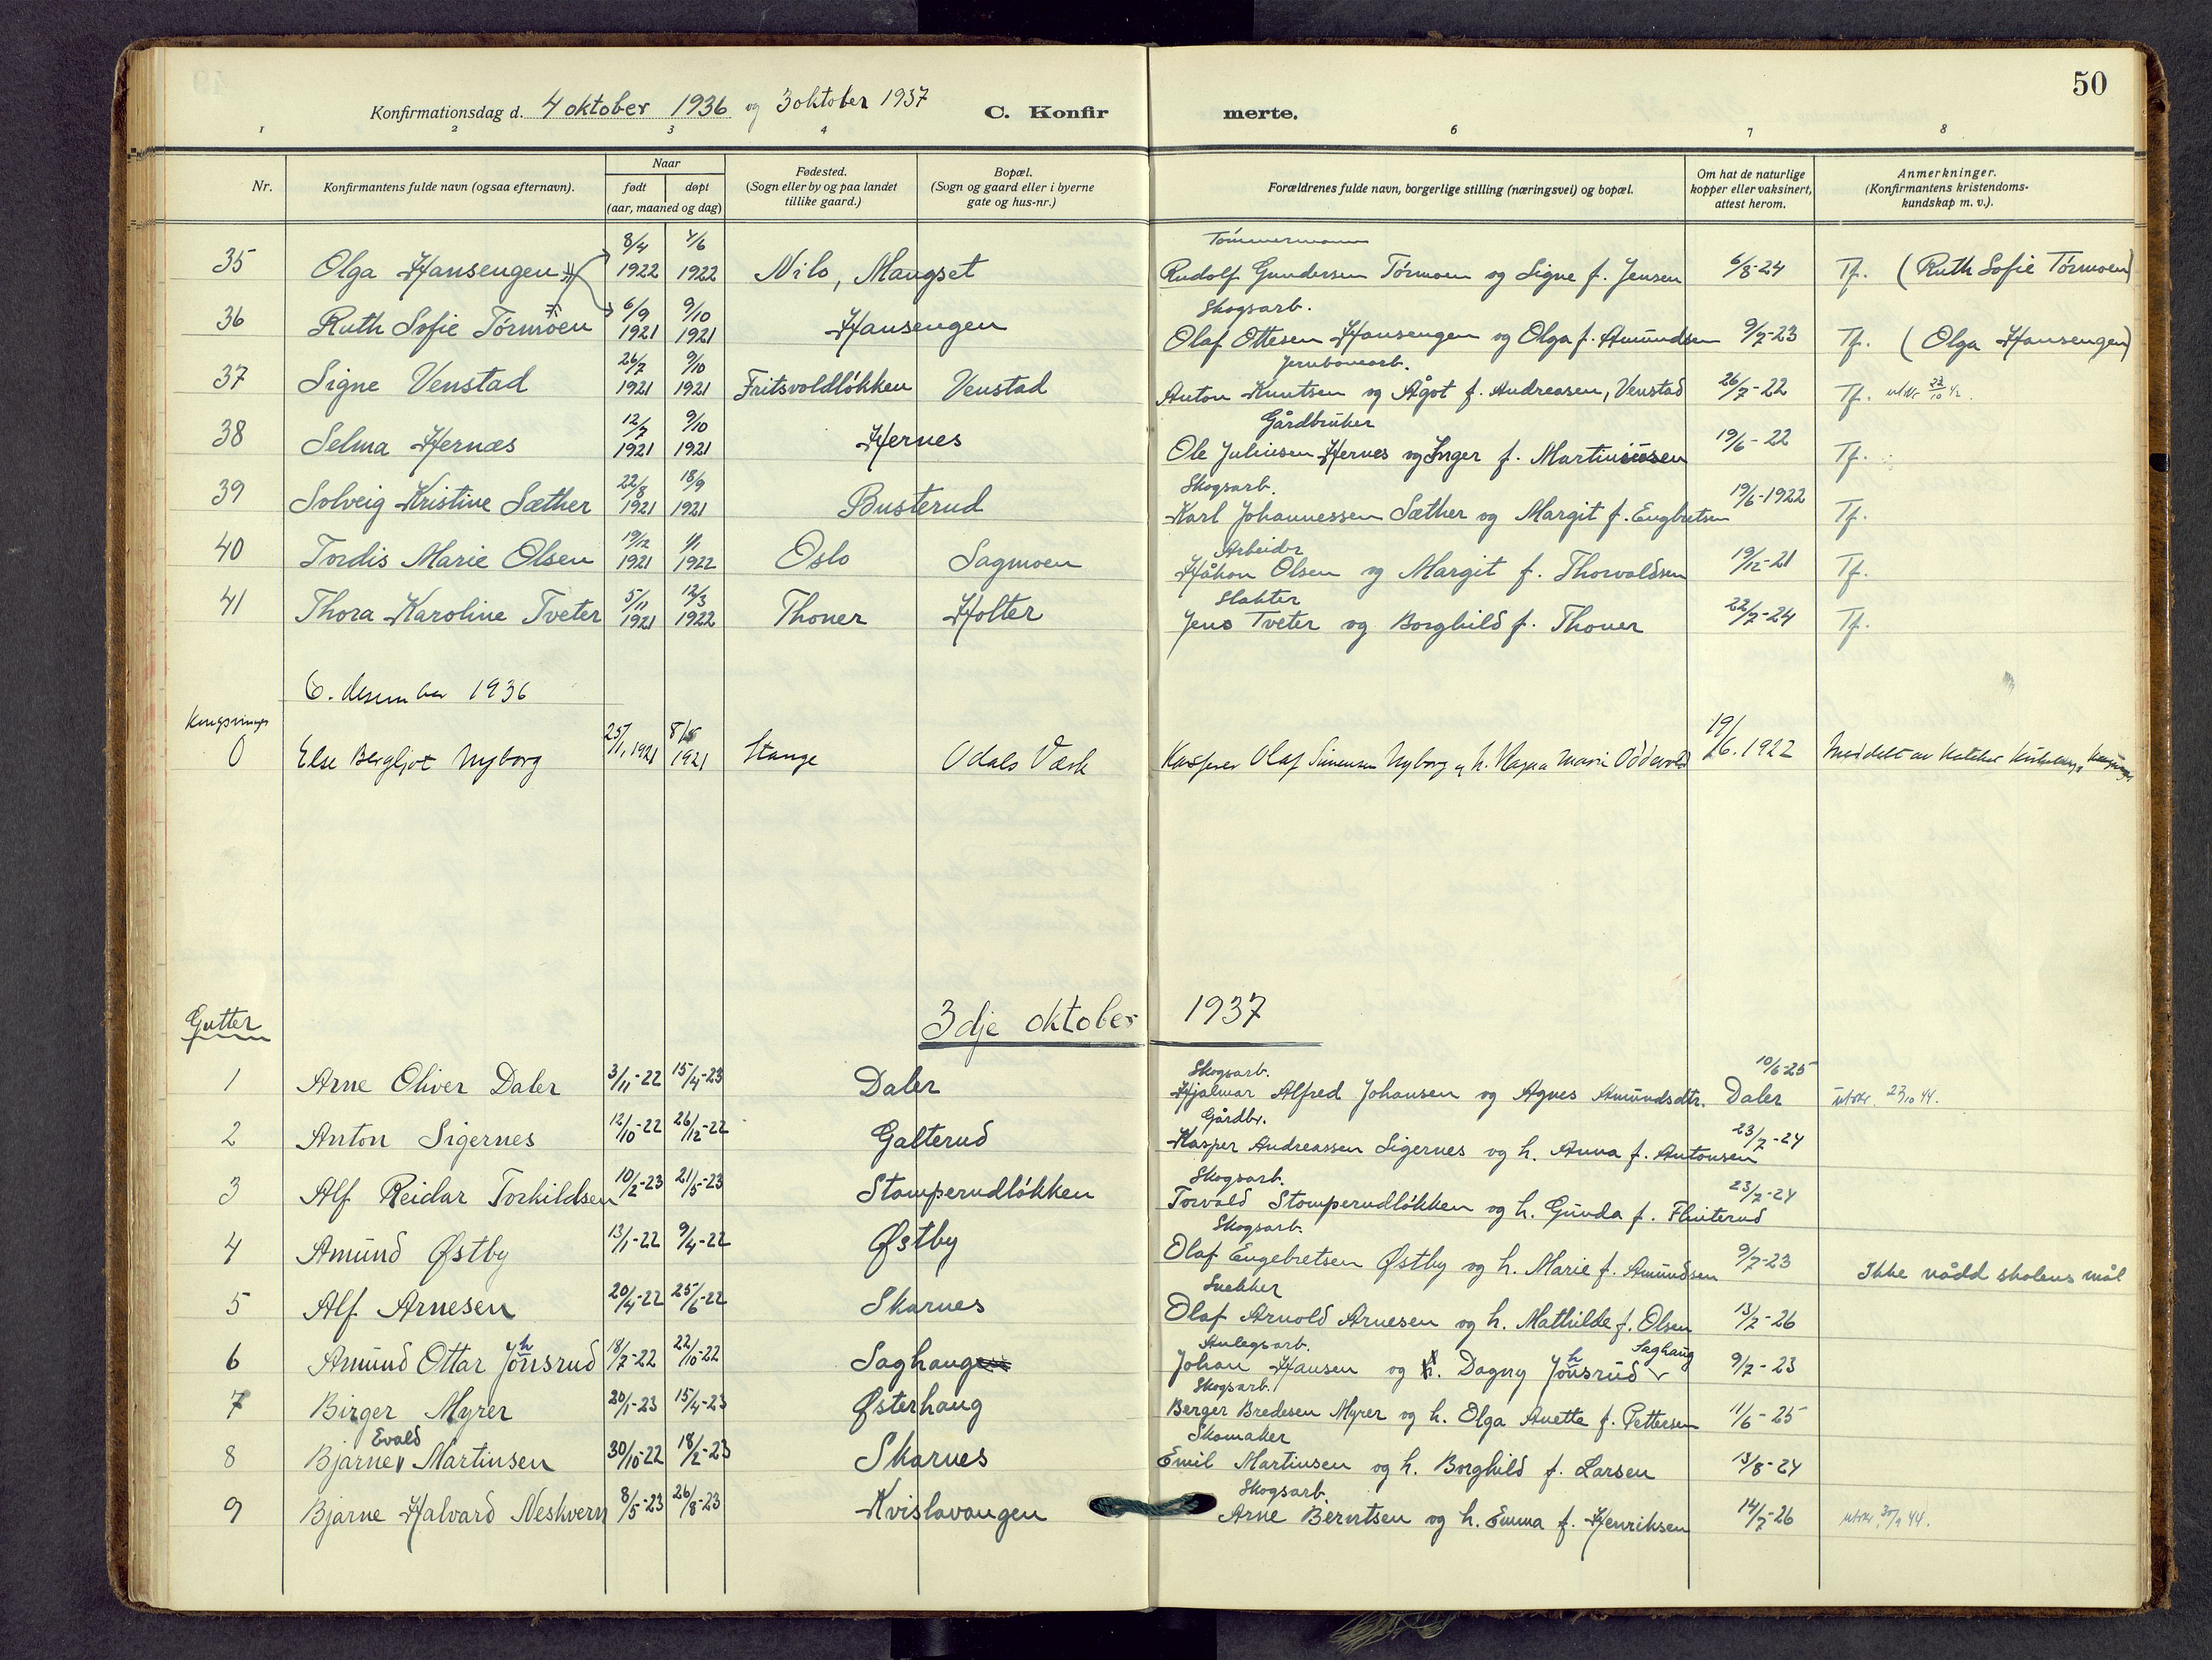 50
Konfirmationsdag d. 4 oktober 1936 og 3 oktober 1937 C. Konfir merte.
1 2 3 4 6 7 8
Nr. Konfirmantens fulde navn (ogsaa efternavn). Naar født døpt (aar, maaned og dag) Fødested. (Sogn eller by og paa landet tillike gaard.) Bopæl. (Sogn og gaard eller i byerne gate og hus-nr.) Forældrenes fulde navn, borgerlige stilling (næringsvei) og bopæl. Om hat de naturlige kopper eller vaksinert, attest herom. Anmerkninger. (Konfirmantens kristendoms-kundskap m. v.).
8/4 4/6 Tömmermann
35 Olga Hansengen 1922 1922 Nilo, Maugset Rudolf Gundersen Törmoen og Signe f. Jensen 6/8-24 Tf. (Ruth Sofie Törmoen)
6/9 9/10 Skogsarb.
36 Ruth Sofie Törmoen 1921 1921 Hansengen Olaf Ottesen Hansengen og Olga f. Amundsen 9/7-23 Tf. (Olga Hansengen)
26/7 9/10 Jernbanearb.
37 Signe Venstad 1921 1921 Fritsvoldløkken Venstad Anton Knutsen og Ågot f. Andreasen, Venstad 26/7-22 Tf.
12/7 9/10 Gårdbruker
38 Selma Hernæs 1921 1921 Hernes Ole Juliusen Hernes og Inger f. Martinusen 19/6-22 Tf.
22/8 18/9 Skogsarb.
39 Solveig Kristine Sæther 1921 1921 Busterud Karl Johannessen Sæther og Margit f. Engbretsen 19/6-1922 Tf.
19/12 1/1 Arbeider
40 Tordis Marie Olsen 1921 1922 Oslo Sagmoen Håkon Olsen og Margit f. Thorvaldsen 19/12-21 Tf.
5/11 12/3 Slakter
41 Thora Karoline Tveter 1921 1922 Thoner Holter Jens Tveter og Borghild f. Thoner 22/7-24 Tf.
6. desember 1936
0 Else Bergljot Nyborg 1921 1921 Stange Odals Værk Kasper Olaf Simensen Nyborg og h. Magna Marie Oddevold 19/6.1922 Meddelt av
Gutter 3dje oktober 1937
Skogsarb. 10/6-25
1 Arne Oliver Daler 3/11-22 15/4-23 Daler Hjalmar Alfred Johansen og Agnes Amundsdtr. Daler utskr. 23/10 44.
Gårdbr.
2 Anton Sigernes 12/10-22 26/12-22 Galterud Kasper Andreassen Sigernes og h. Anna f. Antonsen 23/7-24
Skogsarb.
3 Alf Reidar Torkildsen 10/2-23 21/5-23 Stomperudløkken Torvald Stomperudløkken og h. Gunda f. Flinterud 23/7-24
Skogsarb.
4 Amund Østby 13/1-22 9/4-22 Østby Olaf Engebretsen Østby og h. Marie f. Amundsen 9/7-23 Ikke nådd skolens mål
Snekker
5 Alf Arnesen 20/4-22 25/6-22 Skarnes Olaf Arnold Arnesen og h. Mathilde f. Olsen 13/7-26
Anlegsarb. Saghaug
6 Amund Ottar Johnsrud 18/7-22 22/10-22 Saghaug Johan Hansen og Dagny Johnsrud 9/7-23
Skogsarb.
7 Birger Myrer 20/1-23 15/4-23 Østerhaug Berger Bredesen Myrer og h. Olga Anette f. Pettersen 11/6-25
Evald Skomaker
8 Bjarne Martinsen 30/10-22 18/2-23 Skarnes Emil Martinsen og h. Borghild f. Larsen 13/8-24
Skogsarb.
9 Bjarne Halvard Neskvern 8/5-23 26/8-23 Kvislavangen Arne Berntsen og h. Emma f. Henriksen 14/7-26 utskr. 44.